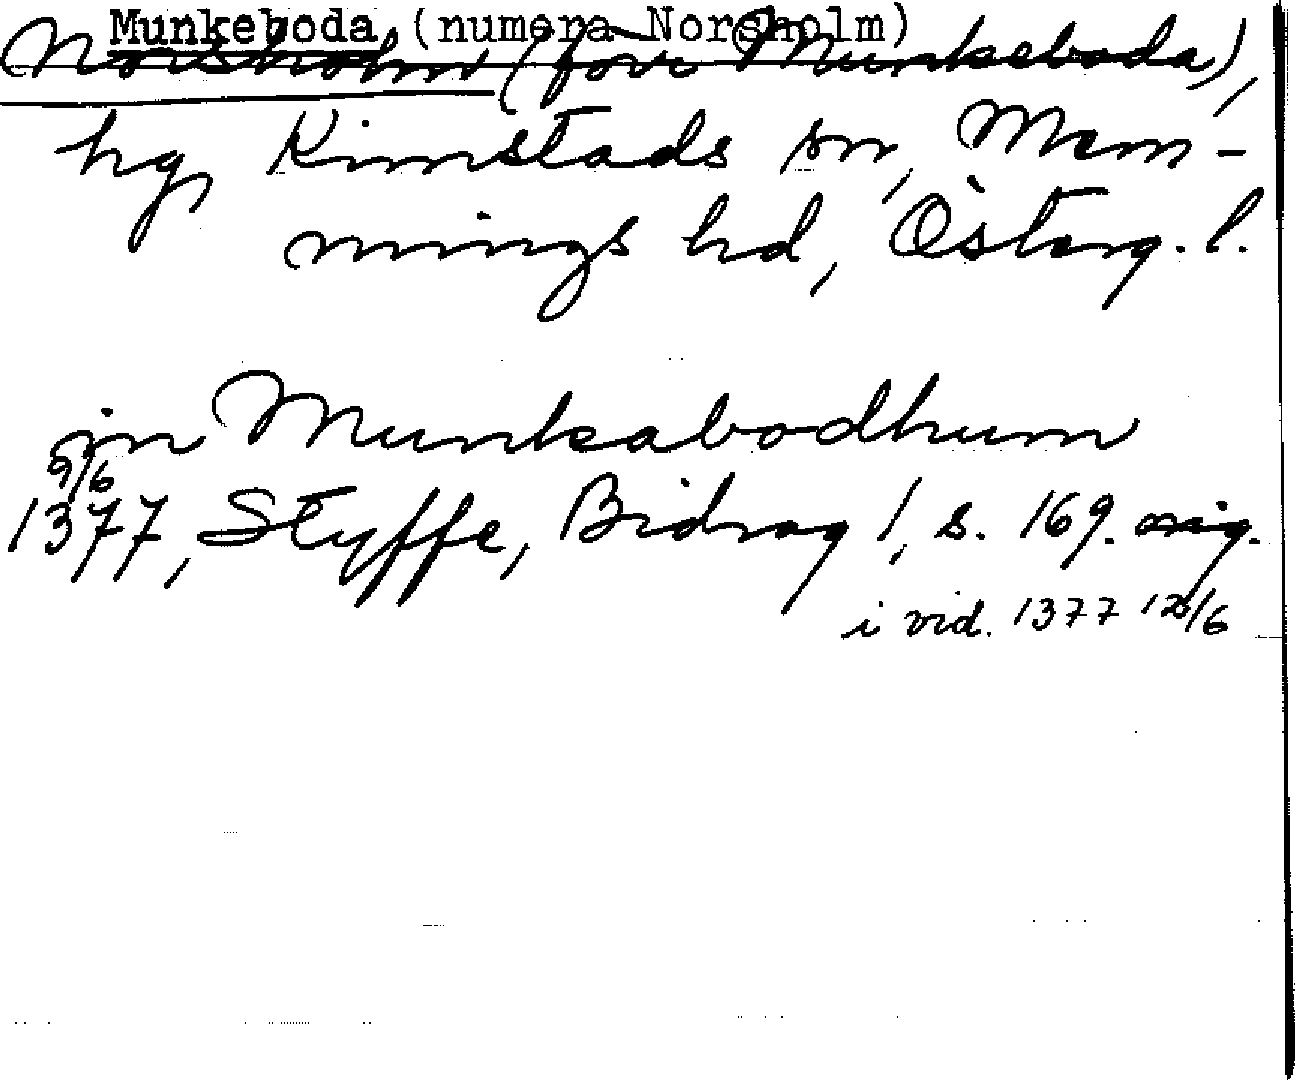 Munkeboda (numera Norsholm)
Norsholm (förr Munkeboda),
hg, Kimstads sn, Mem-
mings hd, Österg. l.
in Munkabodhum
9/6
1377, Styffe, Bidrag 1, s. 169. orig.
i vid. 1377 12/6